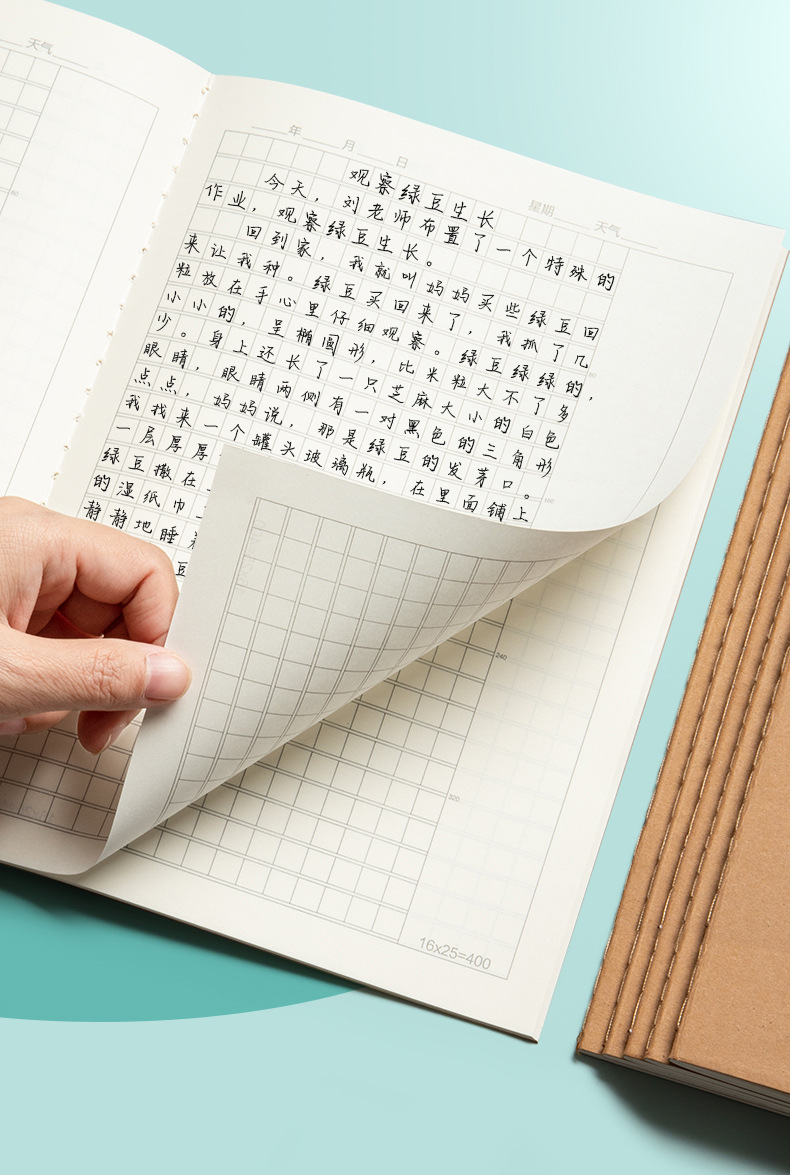 天气
年 月 日
星期 天气
观察绿豆生长
今天，刘老师布置了一个特殊的
作业，观察绿豆生长。
回到家，我就叫妈妈买些绿豆回
来让我种。绿豆买回来了，我抓了几
粒放在手心里仔细观察。绿豆绿绿的，
小小的，呈椭圆形，比米粒大不了多
少。身上还长了一只芝麻大小的白色
眼睛，眼睛两侧有一对黑色的三角形
点点，妈妈说，那是绿豆的发芽口。
我找来一个罐头玻璃瓶，在里面铺上
一层厚厚
绿豆撒在
的湿纸巾
静静地睡
豆
240
320
16x25=400